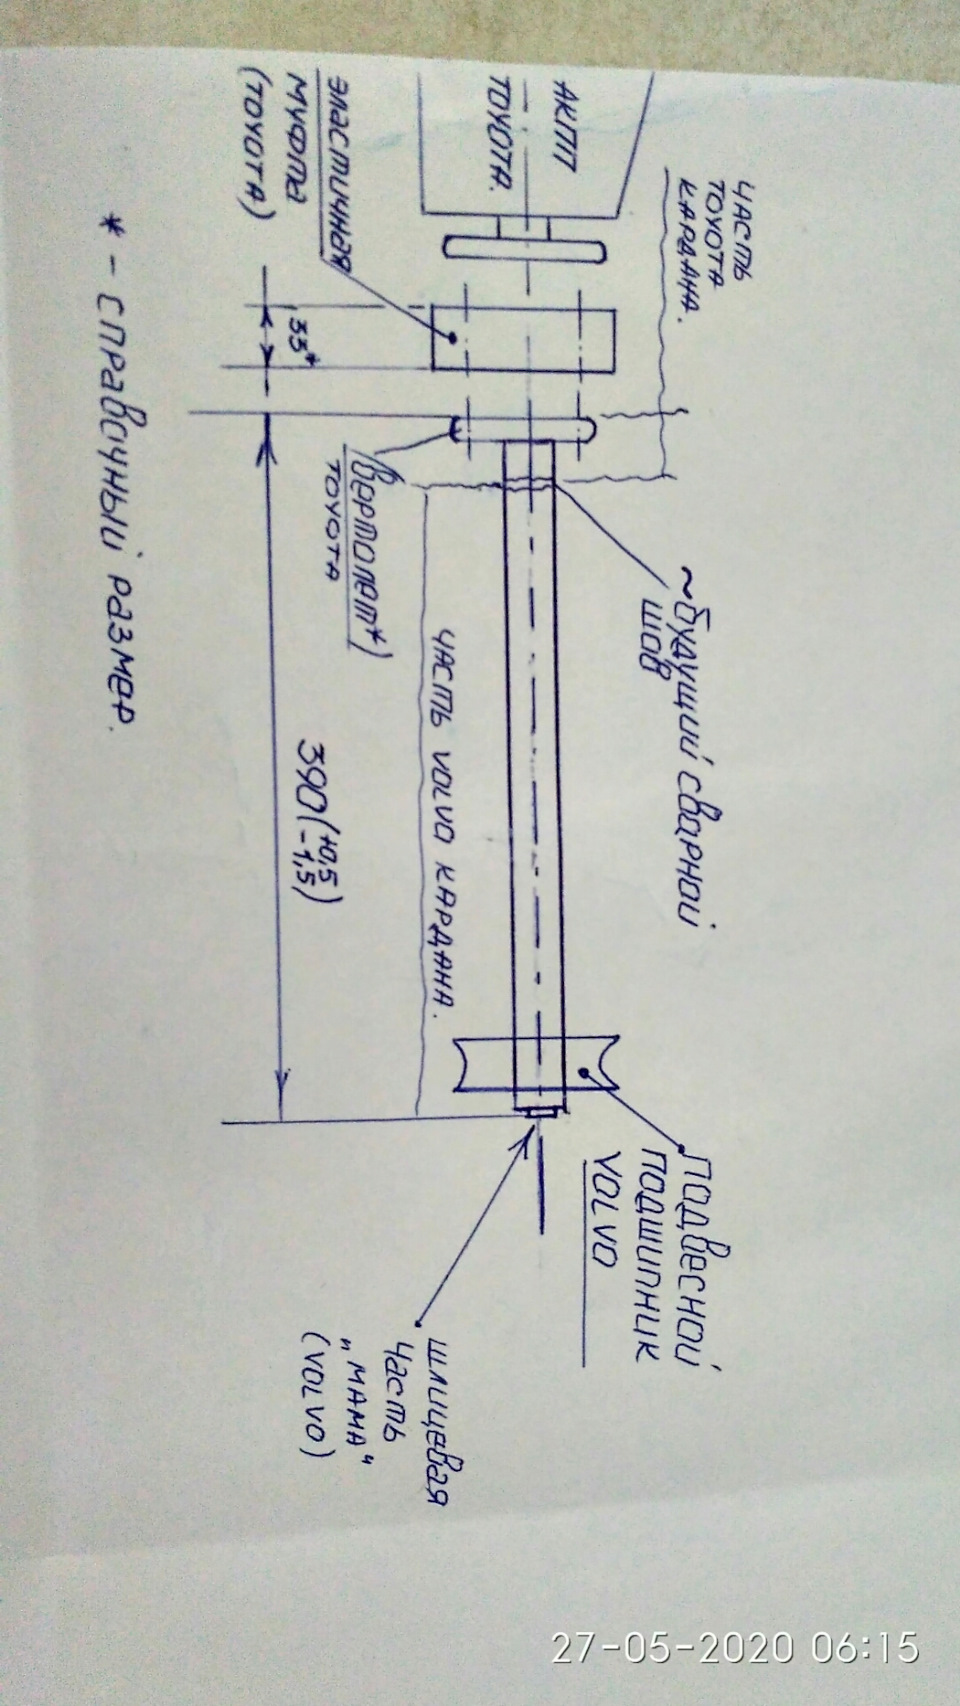 часть
тоуота
кардана.
АКПП
TOYOTA.
эластичная
муфта
(тоуота)
33*
~будущий сварной
шов
Вертолет*)
тоуота
часть VOLVO кардана.
390(+0,5
-1,5)
Подвесной
подшипник
VOLVO
шлицевая
часть
„мама“
(VOLVO)
* - справочный размер.
27-05-2020 06:15